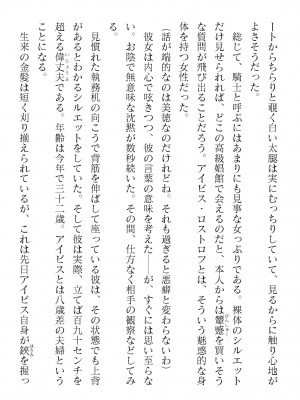 ートからちらりと覗く白い太腿は実にむっちりしていて、見るからに触り心地が
よさそうだった。
総じて、騎士と呼ぶにはあまりにも見事な女っぷりである。裸体のシルエット
だけ見せられれば、どこの高級娼館で会えるのだと、本人からは顰蹙を買いそう
な質問が飛び出ることだろう。アイビス・ロストロフとは、そういう魅惑的な身
体を持つ女性だった。
(話が端的なのは美徳なのだけれどね。それも過ぎると悪癖と変わらないわ)
彼女は内心で呟きつつ、彼の言葉の意味を考えた――が、すぐには思い至らな
い。お陰で無意味な沈黙が数秒続いた。その間、仕方なく相手の観察などしてみ
る。
見慣れた執務机の向こうで背筋を伸ばして座っている彼は、その状態でも上背
があるとわかるシルエットをしていた。そして彼は実際、立てば百九十センチを
超える偉丈夫である。年齢は今年で三十二歳。アイビスとは八歳差の夫婦という
ことになる。
生来の金髪は短く刈り揃えられているが、これは先日アイビス自身が鋏を握っ